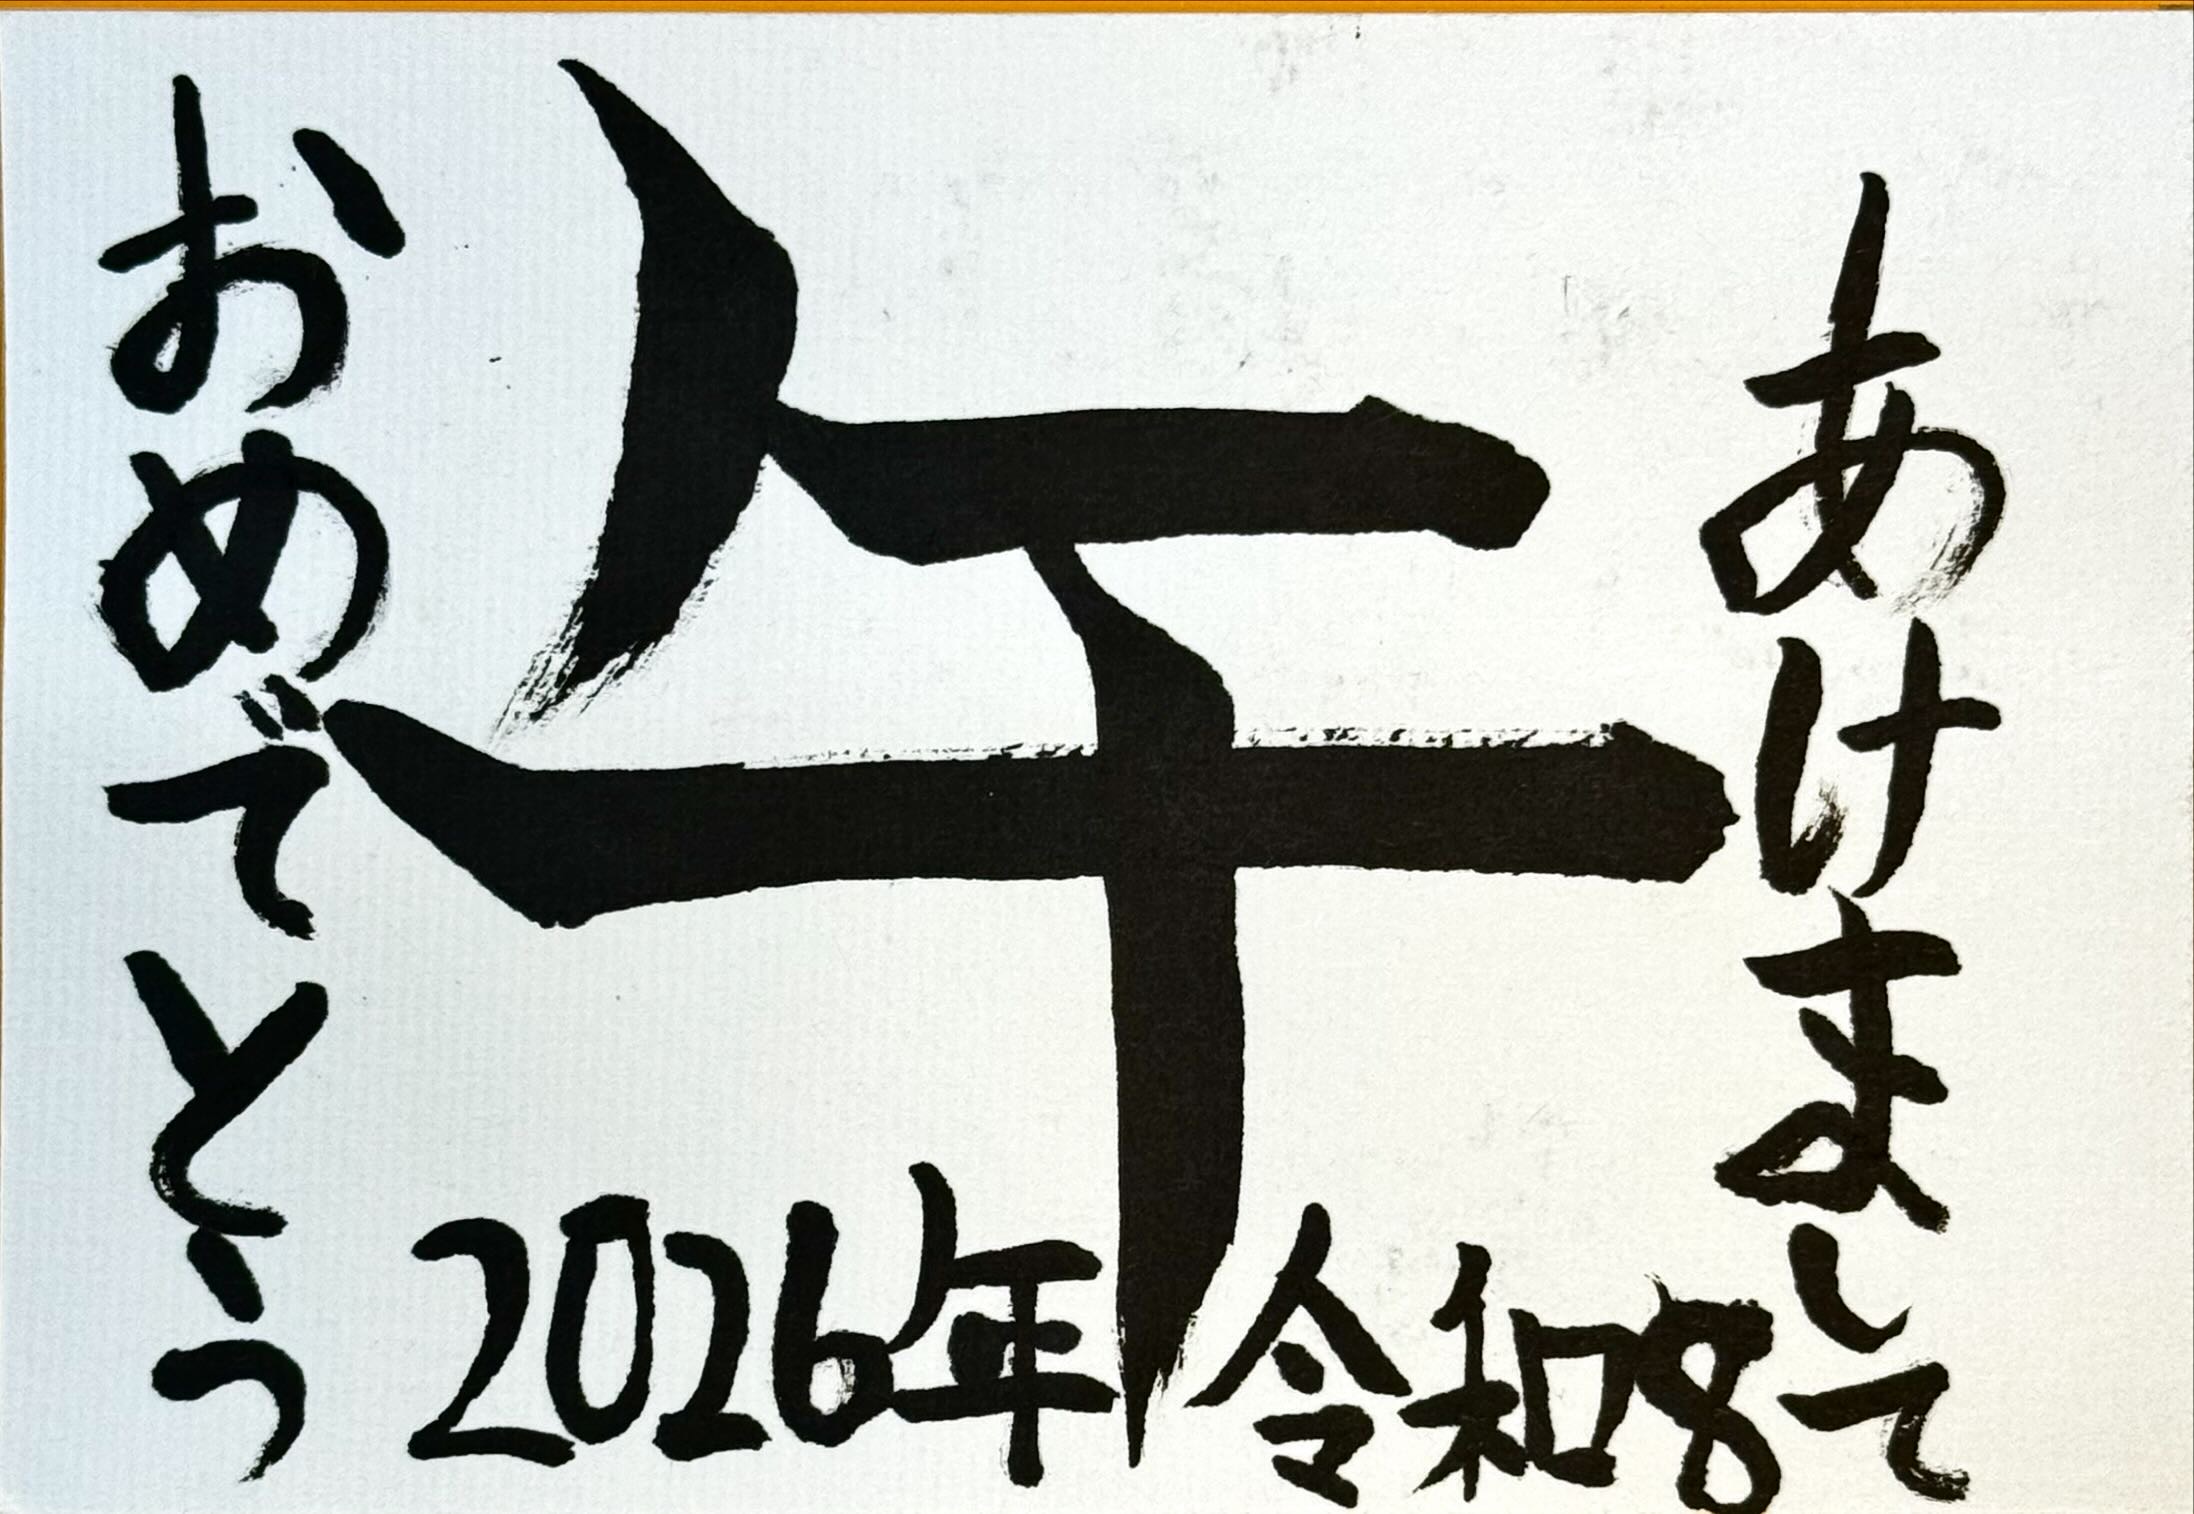 あけまして
午
おめでとう
2026年 令和8